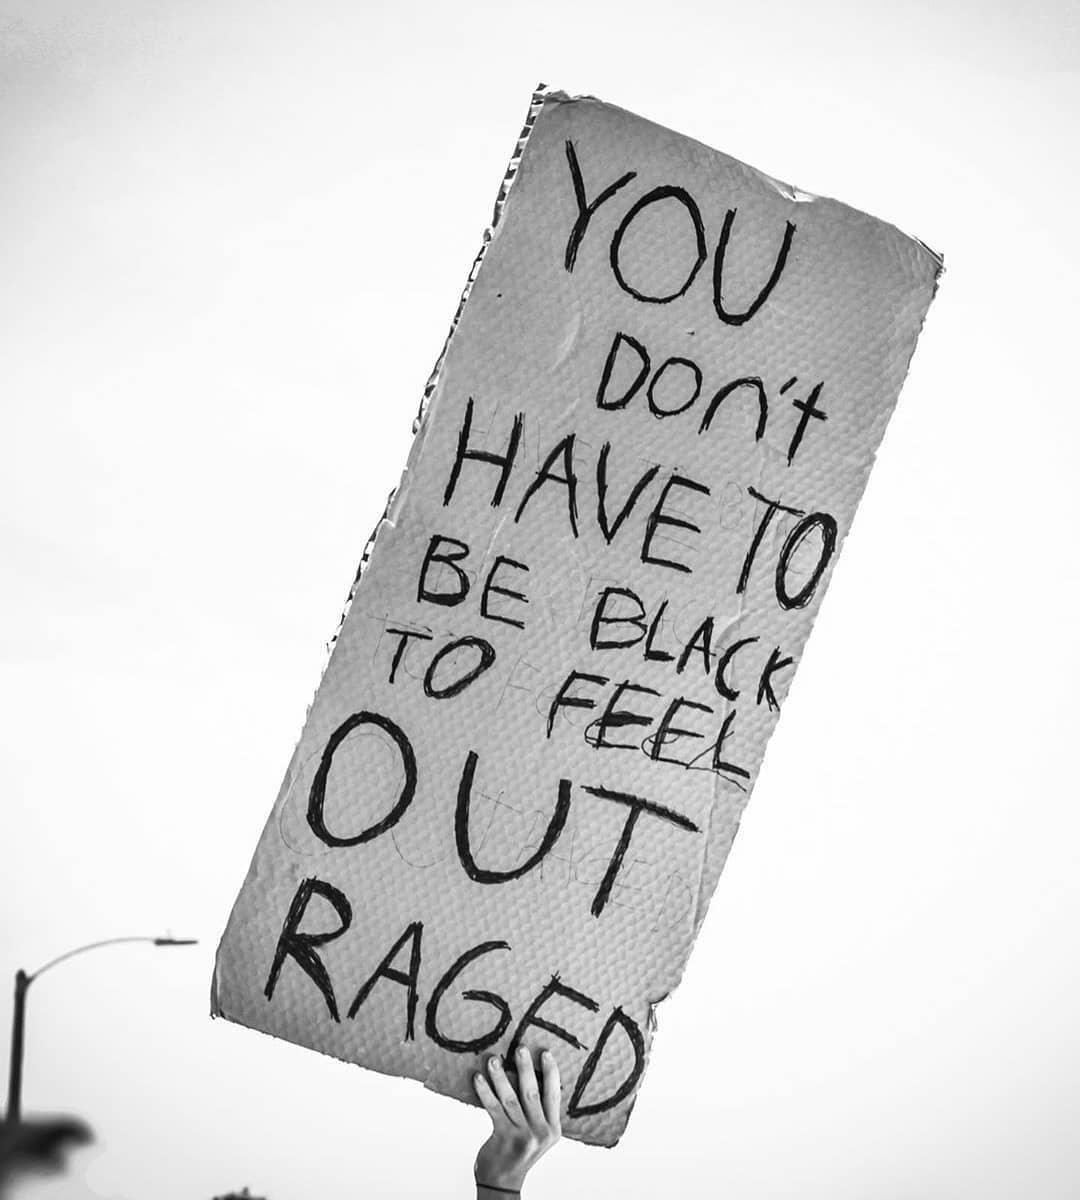 YOU
DOn't
HAVE TO
BE BLACK
TO FEEL
OUT
RAGED